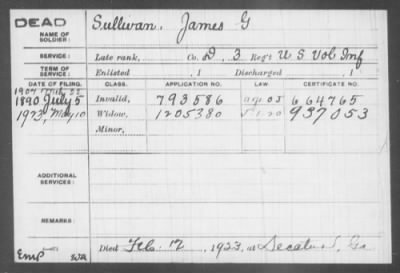 DEAD
NAME OF SOLDIER: Sullivan, James G
SERVICE: Late rank, Co. D, 3 Reg't U S Vol Inf
TERM OF SERVICE: Enlisted , 1 Discharged , 1
DATE OF FILING. CLASS. APPLICATION NO. LAW. CERTIFICATE NO.
1907
1890 July 5 Invalid, 793586 664765
1923, May 10 Widow, 1205380 937053
Minor,
ADDITIONAL SERVICES:
REMARKS:
Died Feb. 12, 1923, at Decatur, Ga
Emp